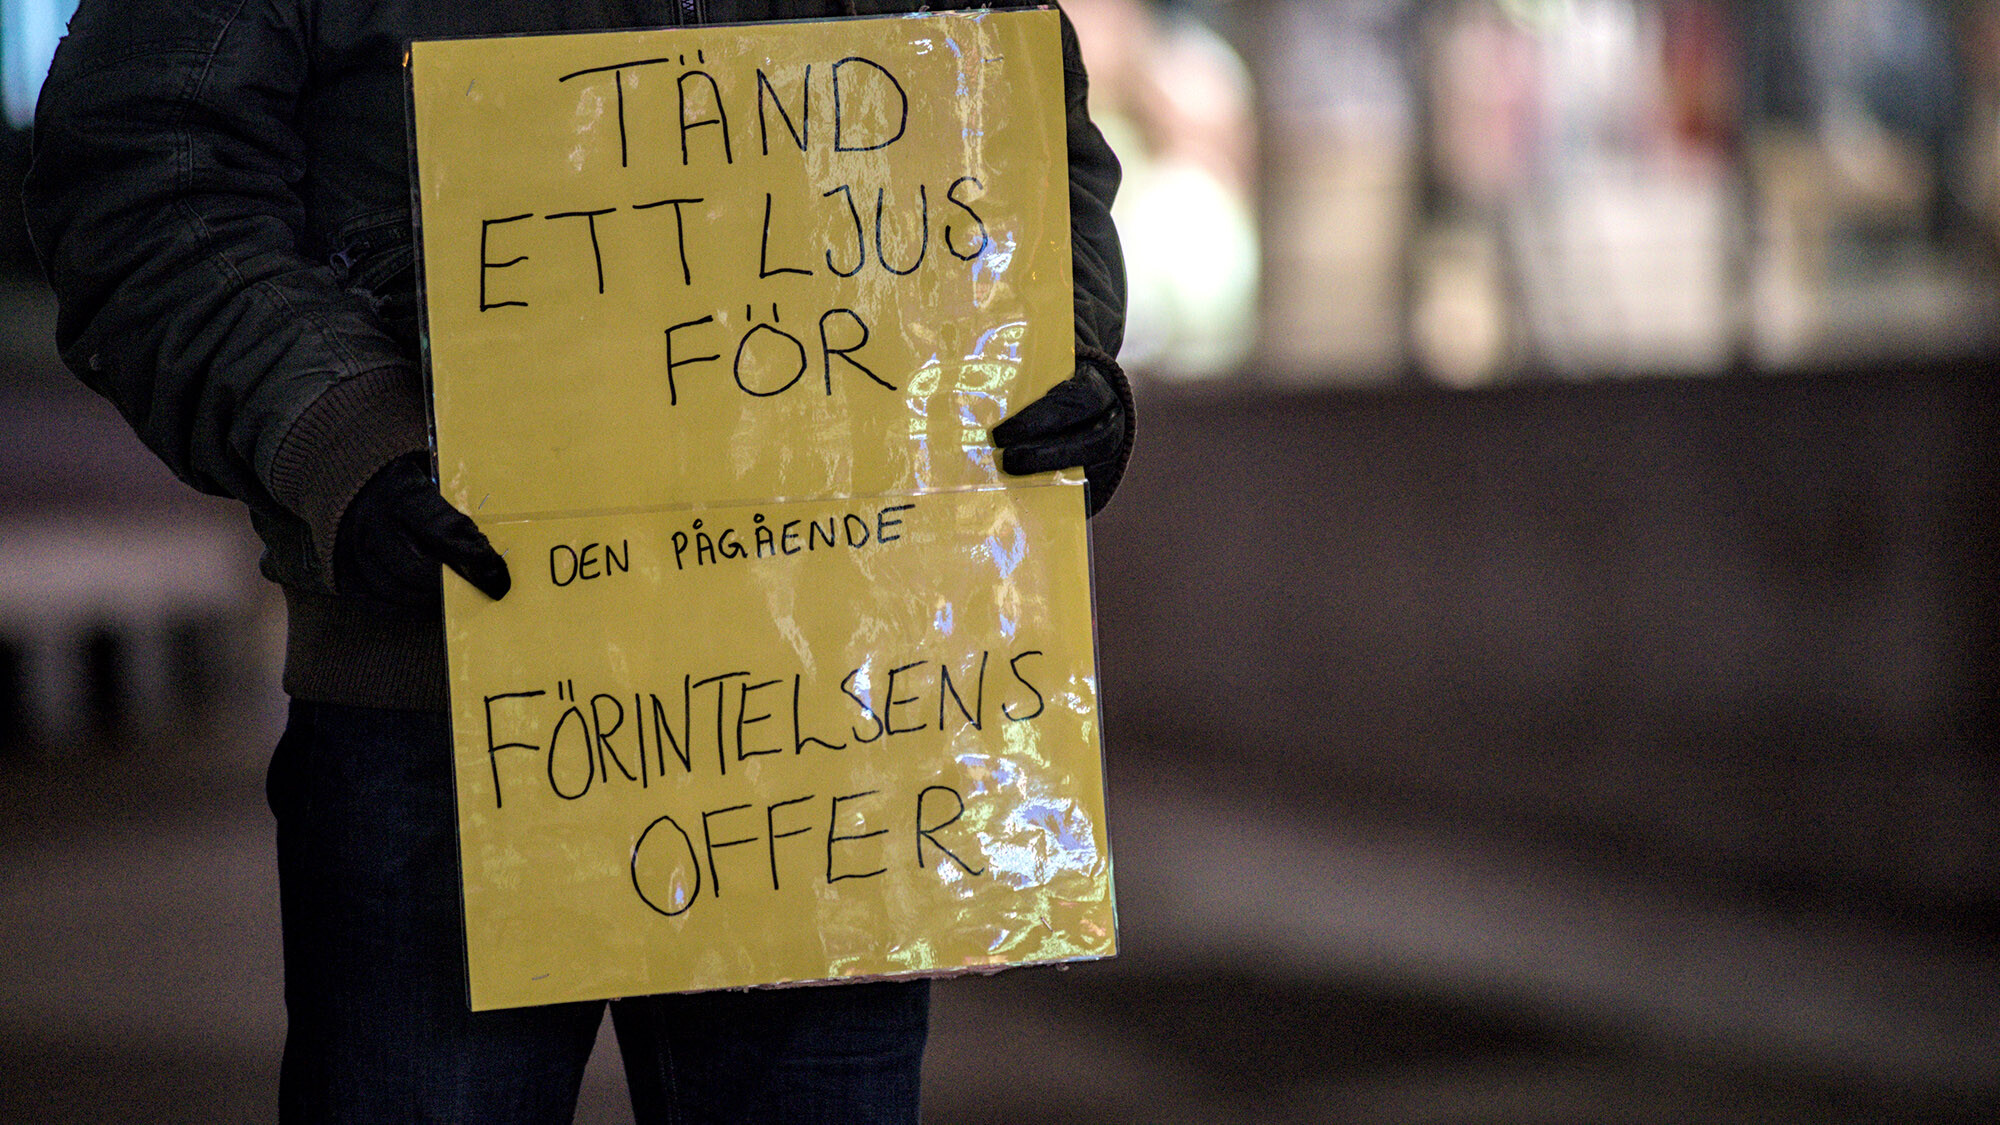 TÄND
ETT LJUS
FÖR
DEN PÅGÅENDE
FÖRINTELSENS
OFFER